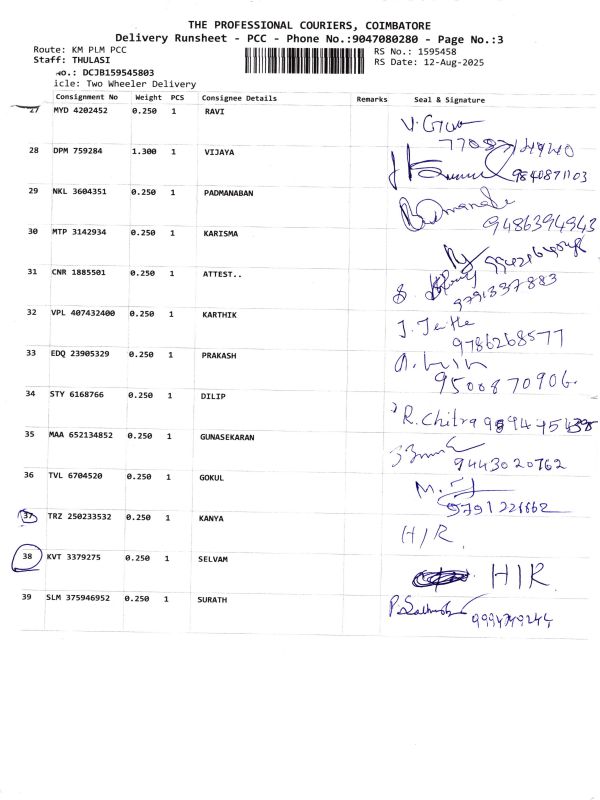 THE PROFESSIONAL COURIERS, COIMBATORE
Delivery Runsheet - PCC - Phone No.:9047080280 - Page No.:3
Route: KM PLM PCC
RS No.: 1595458
Staff: THULASI
RS Date: 12-Aug-2025
No.: DCJB159545803
icle: Two Wheeler Delivery
Consignment No Weight PCS Consignee Details Remarks Seal & Signature
27 MYD 4202452 0.250 1 RAVI
28 DPM 759284 1.300 1 VIJAYA
9840871103
29 NKL 3604351 0.250 1 PADMANABAN
9486394943
30 MTP 3142934 0.250 1 KARISMA
31 CNR 1885501 0.250 1 ATTEST..
9791337883
32 VPL 407432400 0.250 1 KARTHIK
9786268577
33 EDQ 23905329 0.250 1 PRAKASH
9500870906.
34 STY 6168766 0.250 1 DILIP
R. Chitra
35 MAA 652134852 0.250 1 GUNASEKARAN
9443020762
36 TVL 6704520 0.250 1 GOKUL
37 TRZ 250233532 0.250 1 KANYA
H/R.
38 KVT 3379275 0.250 1 SELVAM
H/R
39 SLM 375946952 0.250 1 SURATH